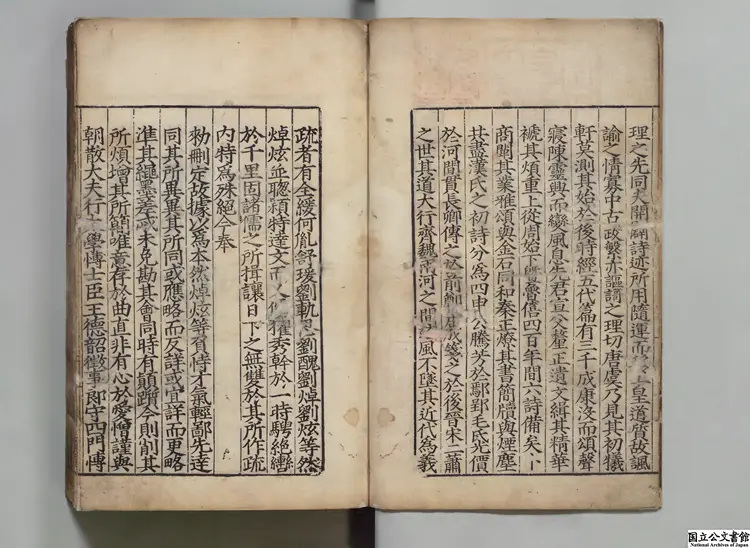 理之先同夫開闢詩迹所用隨運而移上皇道質故諷
諭之情寡中古政繁亦謳謌之理切唐虞乃見其初犧
軒莫測其始於後時經五代篇有三千成康沒而頌聲
寢陳靈興而變風息先君宣父釐正遺文緝其精華
褫其煩重上從周始下曁魯僖四百年間六詩備矣卜
商闡其業雅頌與金石同和秦正燎其書簡牘與煙塵
共盡漢氏之初詩分爲四申公騰芳於鄢郢毛氏光價
於河間貫長卿傳之於前鄭康成箋之於後晉宋二蕭
之世其道大行齊魏兩河之間茲風不墜其近代爲義
疏者有全緩何胤舒瑗劉軌思劉醜劉焯劉炫等然
焯炫並聰穎特達文而又儒擢秀幹於一時騁絕轡
於千里固諸儒之所揖讓日下之無雙於其所作疏
內特爲殊絕今奉
勑刪定故據以爲本然焯炫等負恃才氣輕鄙先達
同其所異異其所同或應略而反詳或宜詳而更略
準其繩墨差忒未免勘其會同時有顛躓今則削其
所煩增其所簡唯意存於曲直非有心於愛憎謹與
朝散大夫行太學博士臣王德韶徵事郎守四門博
国立公文書館
National Archives of Japan